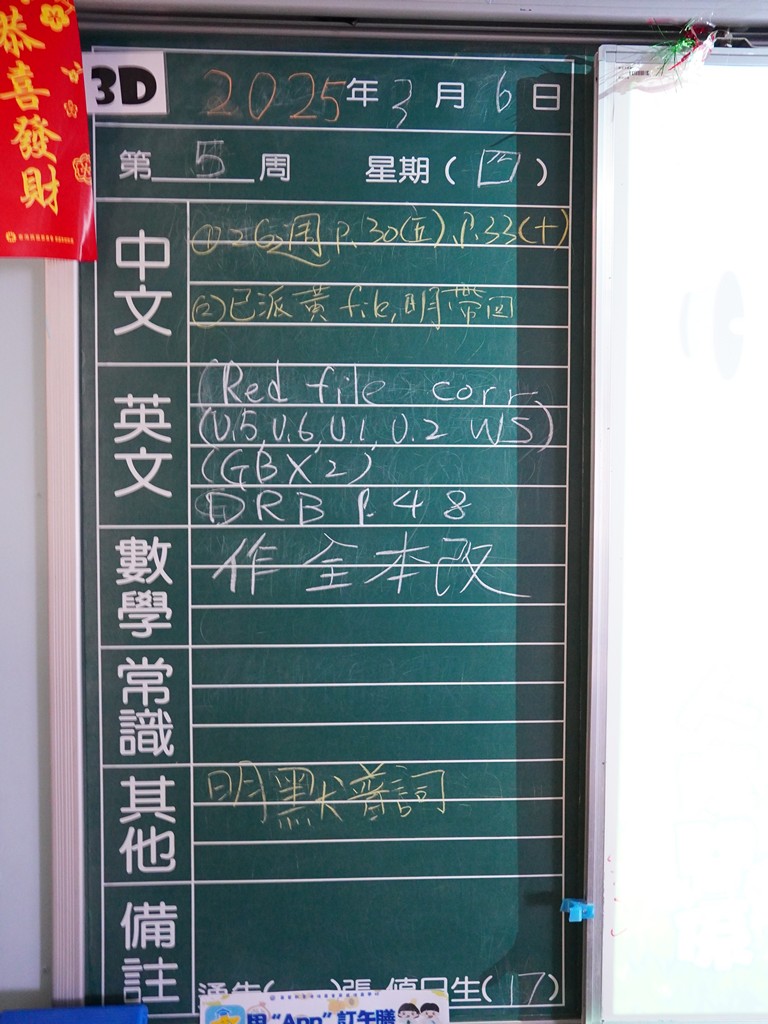 恭喜發財
3D
2025年3月6日
第5周 星期(四)
中文
① 2G2周 P.30(五) P.33(十)
② 已派黃 file, 明帶回
英文
(Red file corr.
(U.5, U.6, U.1, U.2 WS)
(GB X 2)
DRB P.48
數學
作全本改
常識
其他
明默普詞
備註
通告( )張 值日生(17)
用"App"訂午膳